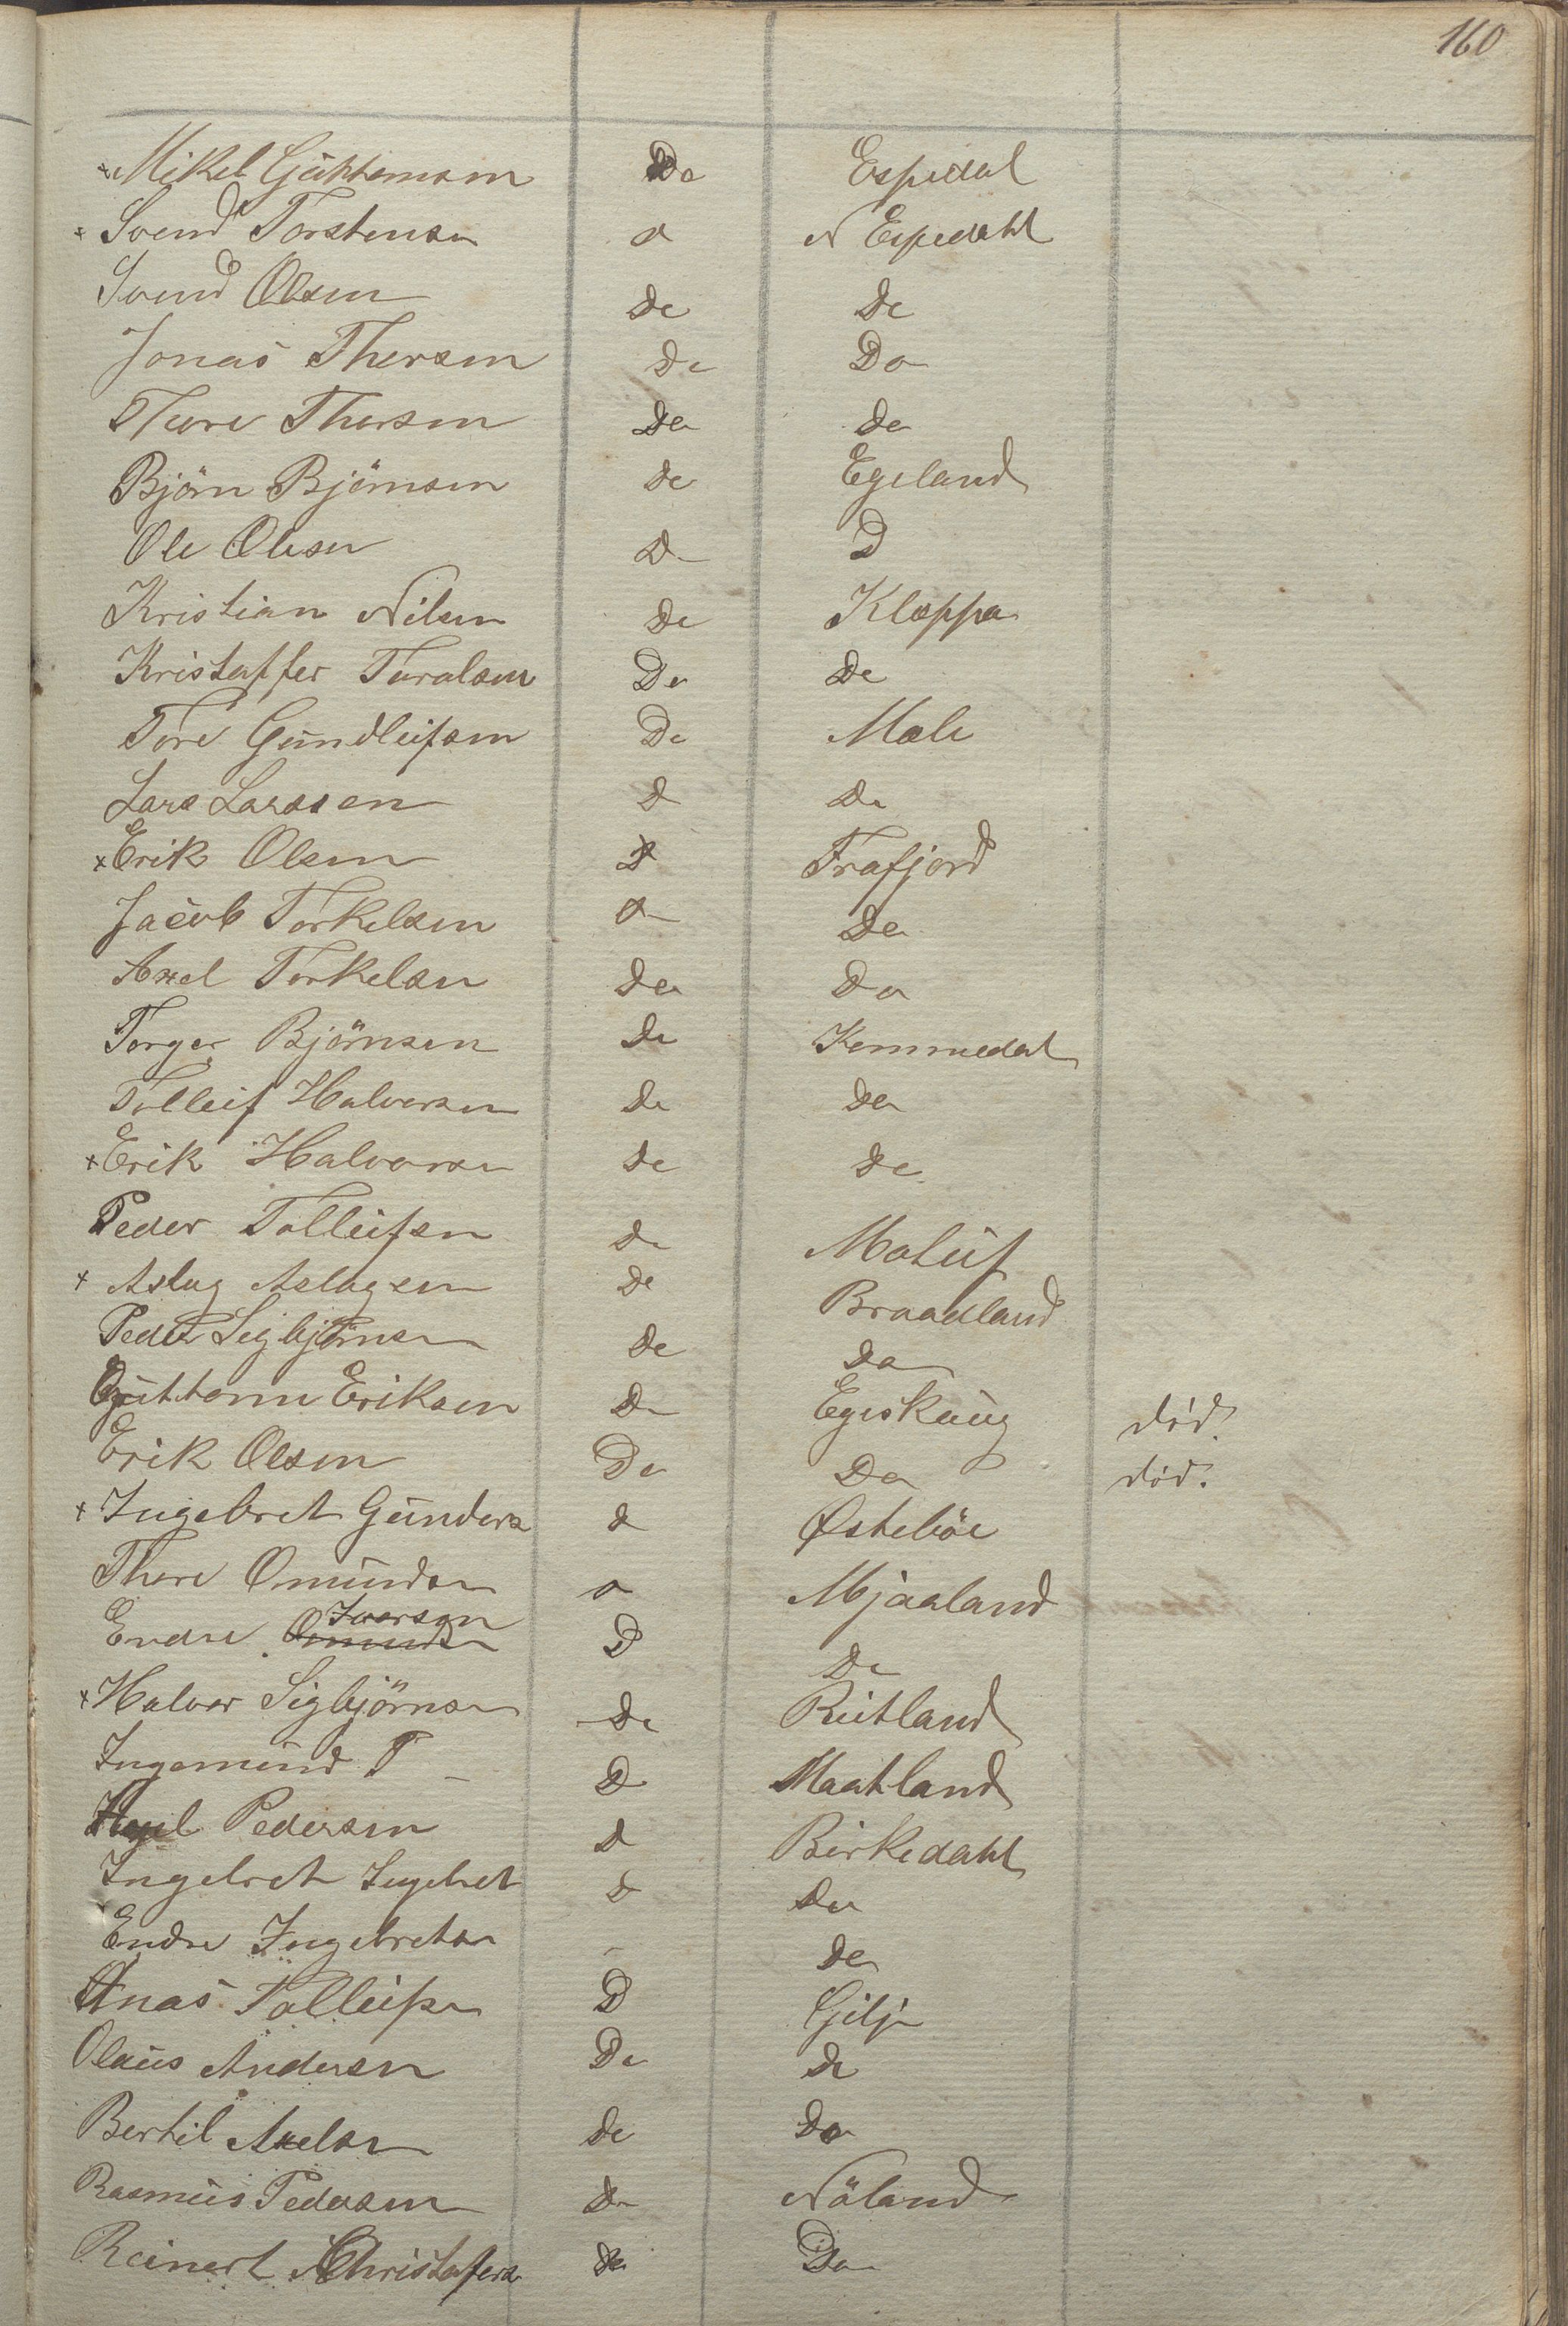 160
× Mikel Guttomsen Do Espedal
× Svend Torstensen D N Espedahl
Svend Olsen do do
Jonas Thorsen do Do
Thore Thorsen do do
Björn Björnsen do Egeland
Ole Olesen D D
Kristian Nilsen do Kloppa
Kristoffer Taralsen Do do
Tore Gundleifsen Do Mæle
Lars Larssen D do
× Erik Olsen D Frafjord
Jacob Torkelsen D do
Axel Torkelsen do do
Torger Björnsen do Kommedal
Tolleif Halvorsen do do
× Erik Halvorsen do do
Peder Tolleifsen do Molaug
× Aslag Aslagsen do Braadland
Peder Sigbjörnsen do do
Guttorm Eriksen D Egeskaug död.
Erik Olsen Do Do död.
× Ingebret Gunders d Østeböe
Thore Omundsen D Mjaaland
Endre Omundsen Iversen D do
× Halvor Sigbjörnsen do Rutland
Ingemund T D Maatland
Pedersen d Birkedahl
Ingebret Ingebret d do
Endre Ingebretsen - do
Onas Tolleifsen D Gilje
Olaus Andersen Do do
Bertil Axelsen do do
Rasmus Pedersen do Nöland
Reinert Christofers do Do